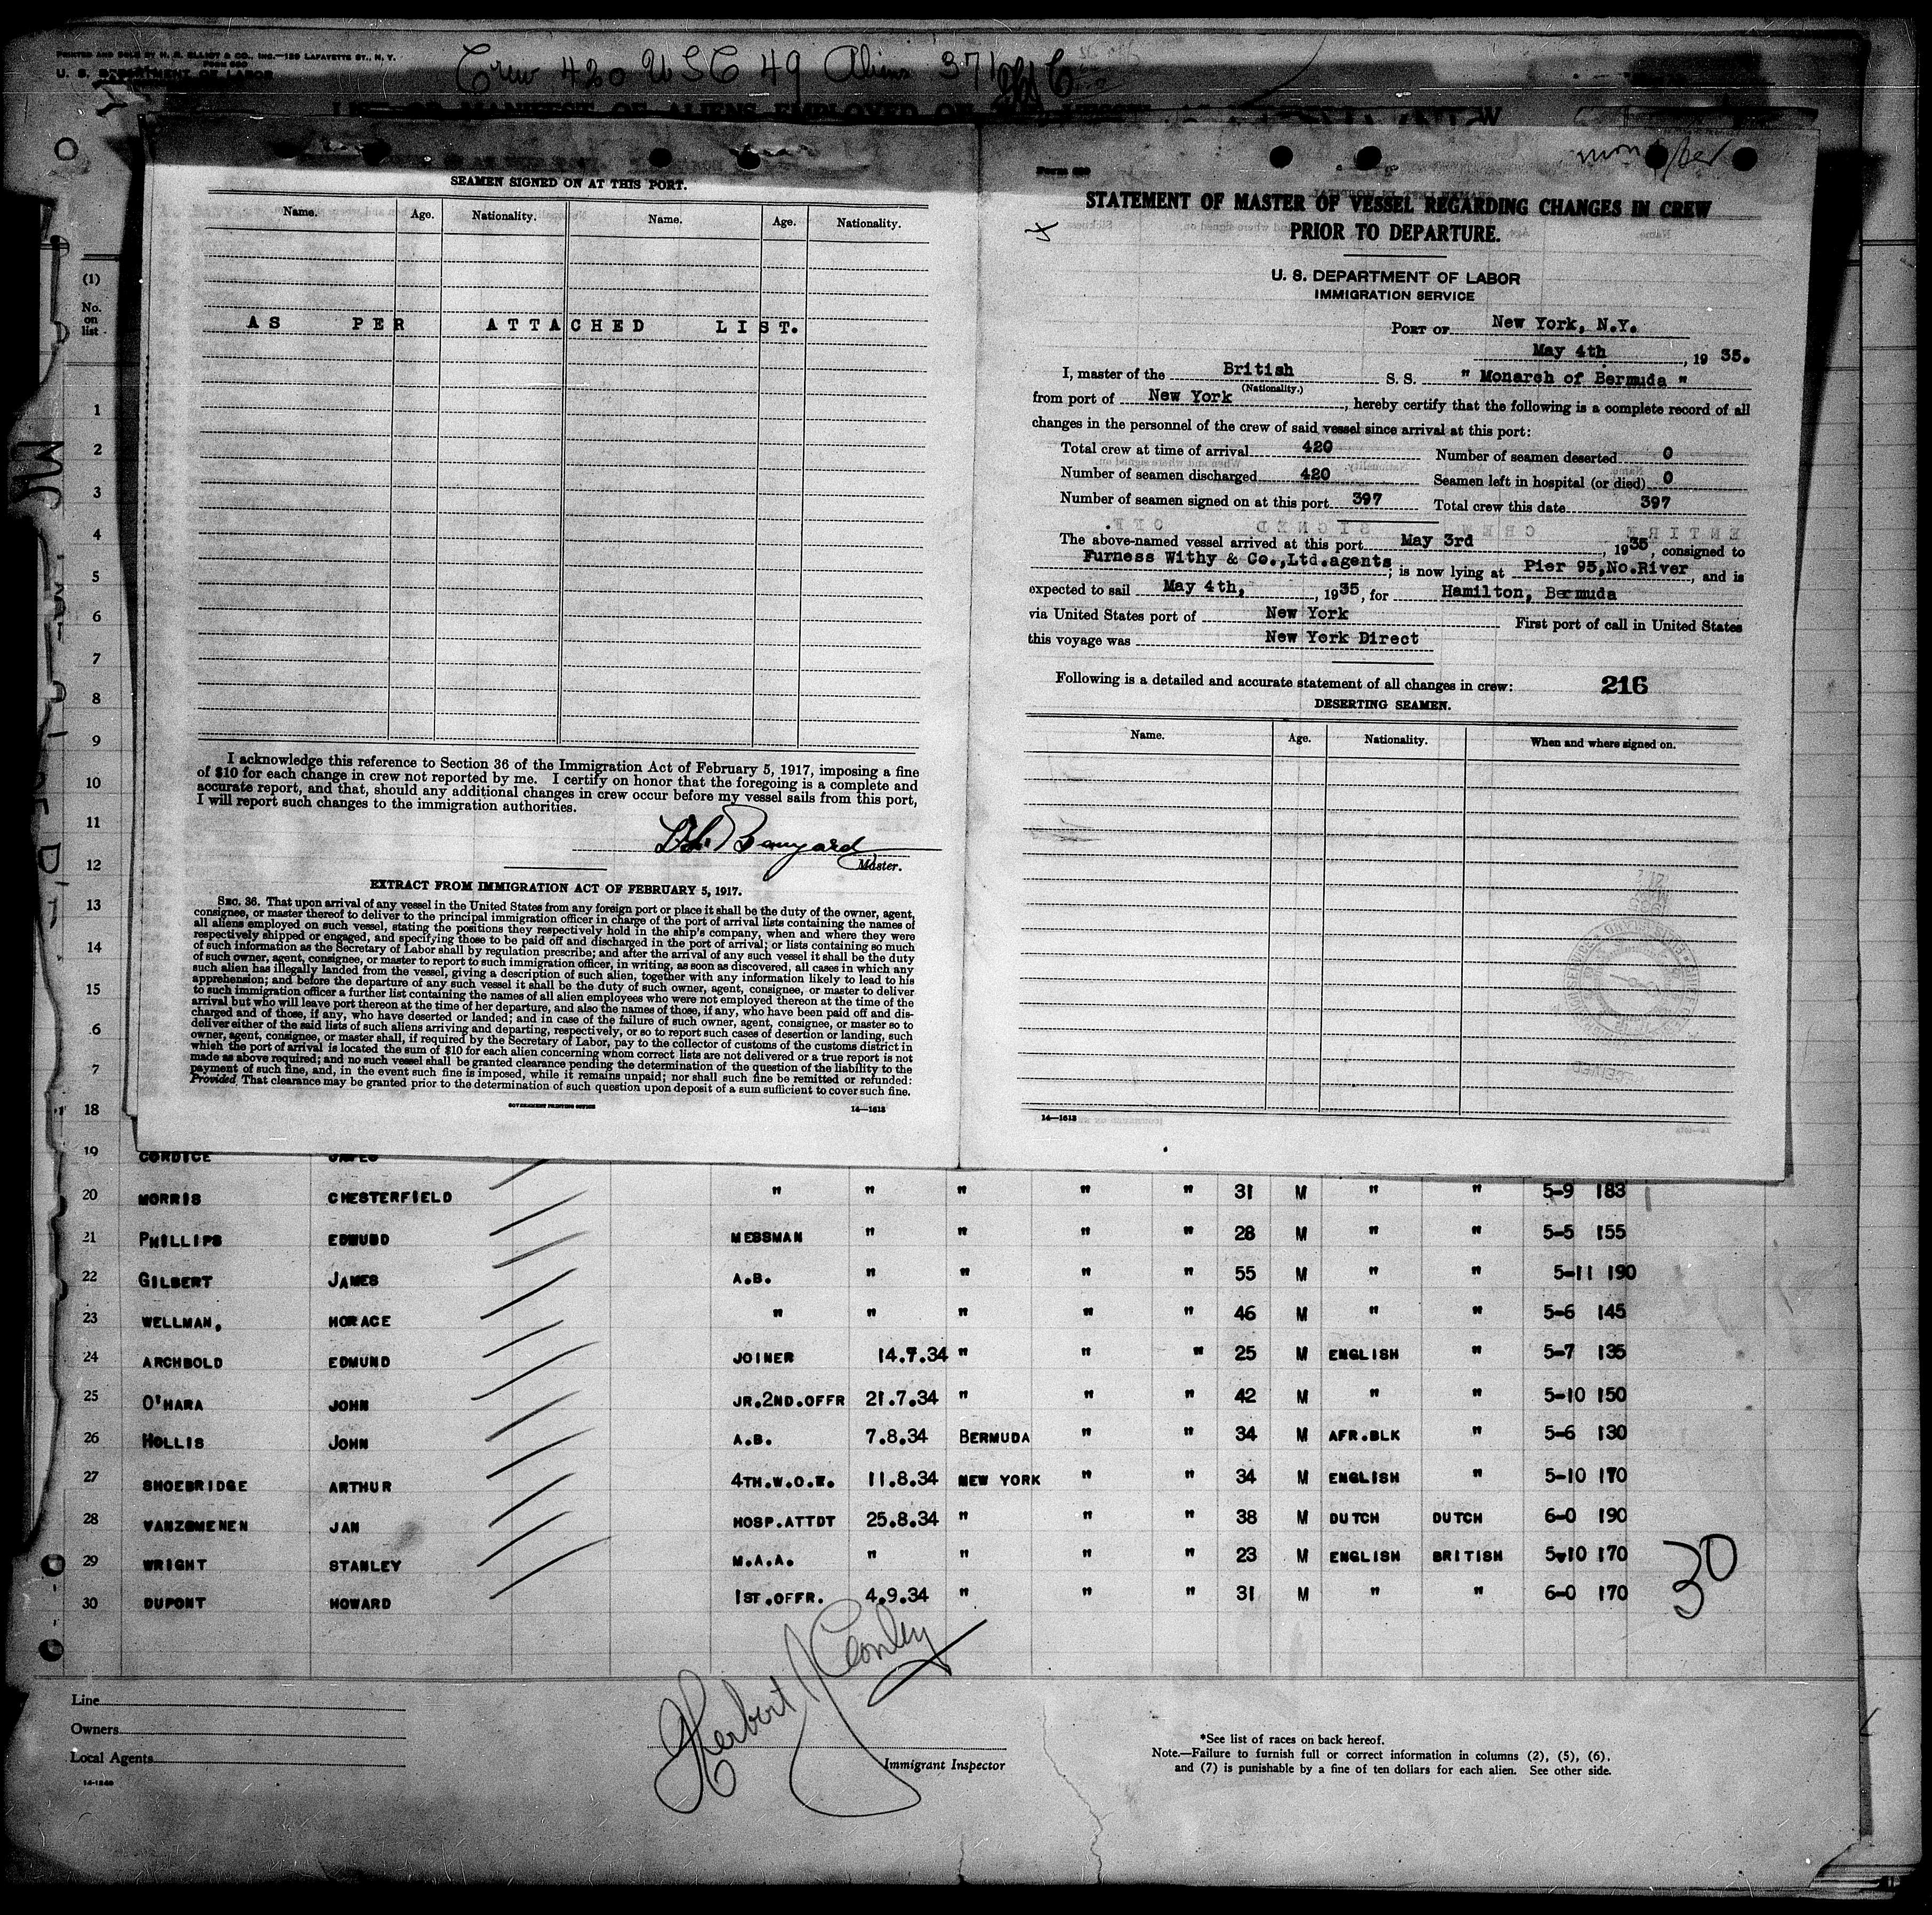 PRINTED AND SOLD BY H. R. ELLIOT & CO., INC.—129 LAFAYETTE ST., N. Y.
FORM 680
U. S. DEPARTMENT OF LABOR
Crew 420 USC 49 Aliens 371
LIST OR MANIFEST OF ALIENS EMPLOYED ON
SEAMEN SIGNED ON AT THIS PORT.
Name. Age. Nationality. Name. Age. Nationality.
AS PER ATTACHED LIST.
I acknowledge this reference to Section 36 of the Immigration Act of February 5, 1917, imposing a fine
of $10 for each change in crew not reported by me. I certify on honor that the foregoing is a complete and
accurate report, and that, should any additional changes in crew occur before my vessel sails from this port,
I will report such changes to the immigration authorities.
Master.
EXTRACT FROM IMMIGRATION ACT OF FEBRUARY 5, 1917.
SEC. 36. That upon arrival of any vessel in the United States from any foreign port or place it shall be the duty of the owner, agent,
consignee, or master thereof to deliver to the principal immigration officer in charge of the port of arrival lists containing the names of
all aliens employed on such vessel, stating the positions they respectively hold in the ship's company, when and where they were
respectively shipped or engaged, and specifying those to be paid off and discharged in the port of arrival; or lists containing so much
of such information as the Secretary of Labor shall by regulation prescribe; and after the arrival of any such vessel it shall be the duty
of such owner, agent, consignee, or master to report to such immigration officer, in writing, as soon as discovered, all cases in which any
such alien has illegally landed from the vessel, giving a description of such alien, together with any information likely to lead to his
apprehension; and before the departure of any such vessel it shall be the duty of such owner, agent, consignee, or master to deliver
to such immigration officer a further list containing the names of all alien employees who were not employed thereon at the time of the
arrival but who will leave port thereon at the time of her departure, and also the names of those, if any, who have been paid off and dis-
charged and of those, if any, who have deserted or landed; and in case of the failure of such owner, agent, consignee, or master so to
deliver either of the said lists of such aliens arriving and departing, respectively, or so to report such cases of desertion or landing, such
owner, agent, consignee, or master shall, if required by the Secretary of Labor, pay to the collector of customs of the customs district in
which the port of arrival is located the sum of $10 for each alien concerning whom correct lists are not delivered or a true report is not
made as above required; and no such vessel shall be granted clearance pending the determination of the question of the liability to the
payment of such fine, and, in the event such fine is imposed, while it remains unpaid; nor shall such fine be remitted or refunded:
Provided, That clearance may be granted prior to the determination of such question upon deposit of a sum sufficient to cover such fine.
GOVERNMENT PRINTING OFFICE 14—1613
Form 680
STATEMENT OF MASTER OF VESSEL REGARDING CHANGES IN CREW
PRIOR TO DEPARTURE.
U. S. DEPARTMENT OF LABOR
IMMIGRATION SERVICE
PORT OF New York, N.Y.
May 4th, 1935.
I, master of the British S. S. " Monarch of Bermuda "
(Nationality.)
from port of New York, hereby certify that the following is a complete record of all
changes in the personnel of the crew of said vessel since arrival at this port:
Total crew at time of arrival 420 Number of seamen deserted 0
Number of seamen discharged 420 Seamen left in hospital (or died) 0
Number of seamen signed on at this port 397 Total crew this date 397
The above-named vessel arrived at this port May 3rd, 1935, consigned to
Furness Withy & Co.,Ltd.agents; is now lying at Pier 95,No.River, and is
expected to sail May 4th, , 1935, for Hamilton, Bermuda
via United States port of New York First port of call in United States
this voyage was New York Direct
Following is a detailed and accurate statement of all changes in crew: 216
DESERTING SEAMEN.
Name. Age. Nationality. When and where signed on.
14—1613
(1)
No.
on
list
1
2
3
4
5
6
7
8
9
10
11
12
13
14
15
6
7
18
19 CORDICE JAMES
20 MORRIS CHESTERFIELD " " " " " 31 M " " 5-9 183
21 PHILLIPS EDMUND MESSMAN " " " " 28 M " " 5-5 155
22 GILBERT JAMES A.B. " " " " 55 M " " 5-11 190
23 WELLMAN, HORACE " " " " " 46 M " " 5-6 145
24 ARCHBOLD EDMUND JOINER 14.7.34 " " " 25 M ENGLISH " 5-7 135
25 O'HARA JOHN JR.2ND.OFFR 21.7.34 " " " 42 M " " 5-10 150
26 HOLLIS JOHN A.B. 7.8.34 BERMUDA " " 34 M AFR.BLK " 5-6 130
27 SHOEBRIDGE ARTHUR 4TH.W.O.E. 11.8.34 NEW YORK " " 34 M ENGLISH " 5-10 170
28 VANZOMENEN JAN HOSP.ATTDT 25.8.34 " " " 38 M DUTCH DUTCH 6-0 190
29 WRIGHT STANLEY M.A.A. " " " " 23 M ENGLISH BRITISH 5-10 170
30 DUPONT HOWARD 1ST.OFFR. 4.9.34 " " " 31 M " " 6-0 170
30
Herbert J Conley
Line
Owners
Local Agents
14-1240
Immigrant Inspector
*See list of races on back hereof.
Note.—Failure to furnish full or correct information in columns (2), (5), (6),
and (7) is punishable by a fine of ten dollars for each alien. See other side.